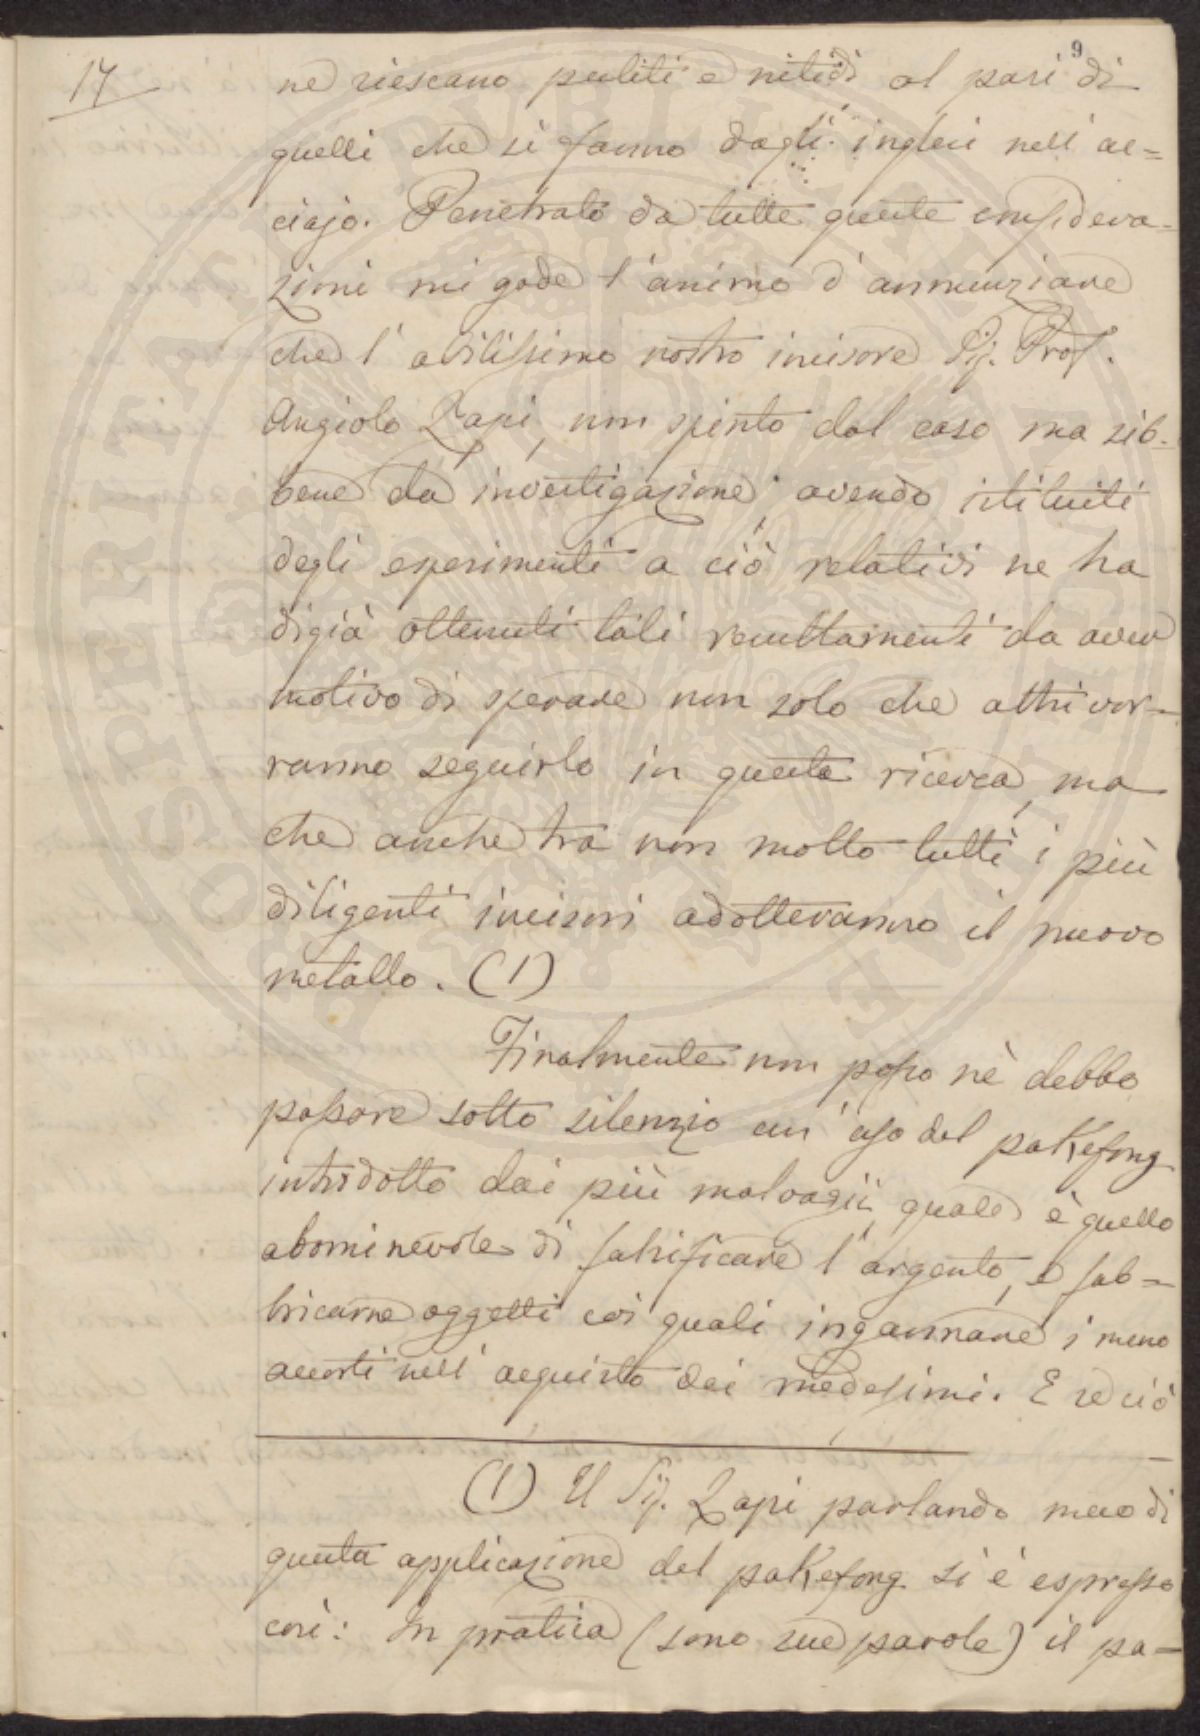 9
17
ne riescano puliti e nitidi al pari di
quelli che si fanno dagli inglesi nell' ac=
ciajo. Penetrato da tutte queste considera=
zioni mi gode l'animo d'annunziare
che l'abilissimo nostro incisore Sig. Prof.
Angiolo Zapi, non spinto dal caso ma sib=
bene da investigazione, avendo istituiti
degli esperimenti a ciò relativi ne ha
digià ottenuti tali resultamenti da aver
motivo di sperare non solo che altri vor=
ranno seguirlo in questa ricerca, ma
che anche tra non molto tutti i più
diligenti incisori adotteranno il nuovo
metallo. (1)
Finalmente non posso nè debbo
passare sotto silenzio un' uso del pakefong
introdotto dai più malvagii, quale è quello
abominevole di falsificare l'argento, e fab=
bricarne oggetti coi quali ingannare i meno
accorti nell' acquisto dei medesimi. E se ciò
(1) Il Sig. Zapi parlando meco di
questa applicazione del pakefong si è espresso
così: In pratica (sono sue parole) il pa=
PROSPERITATI PUBLICAE AUGENDAE